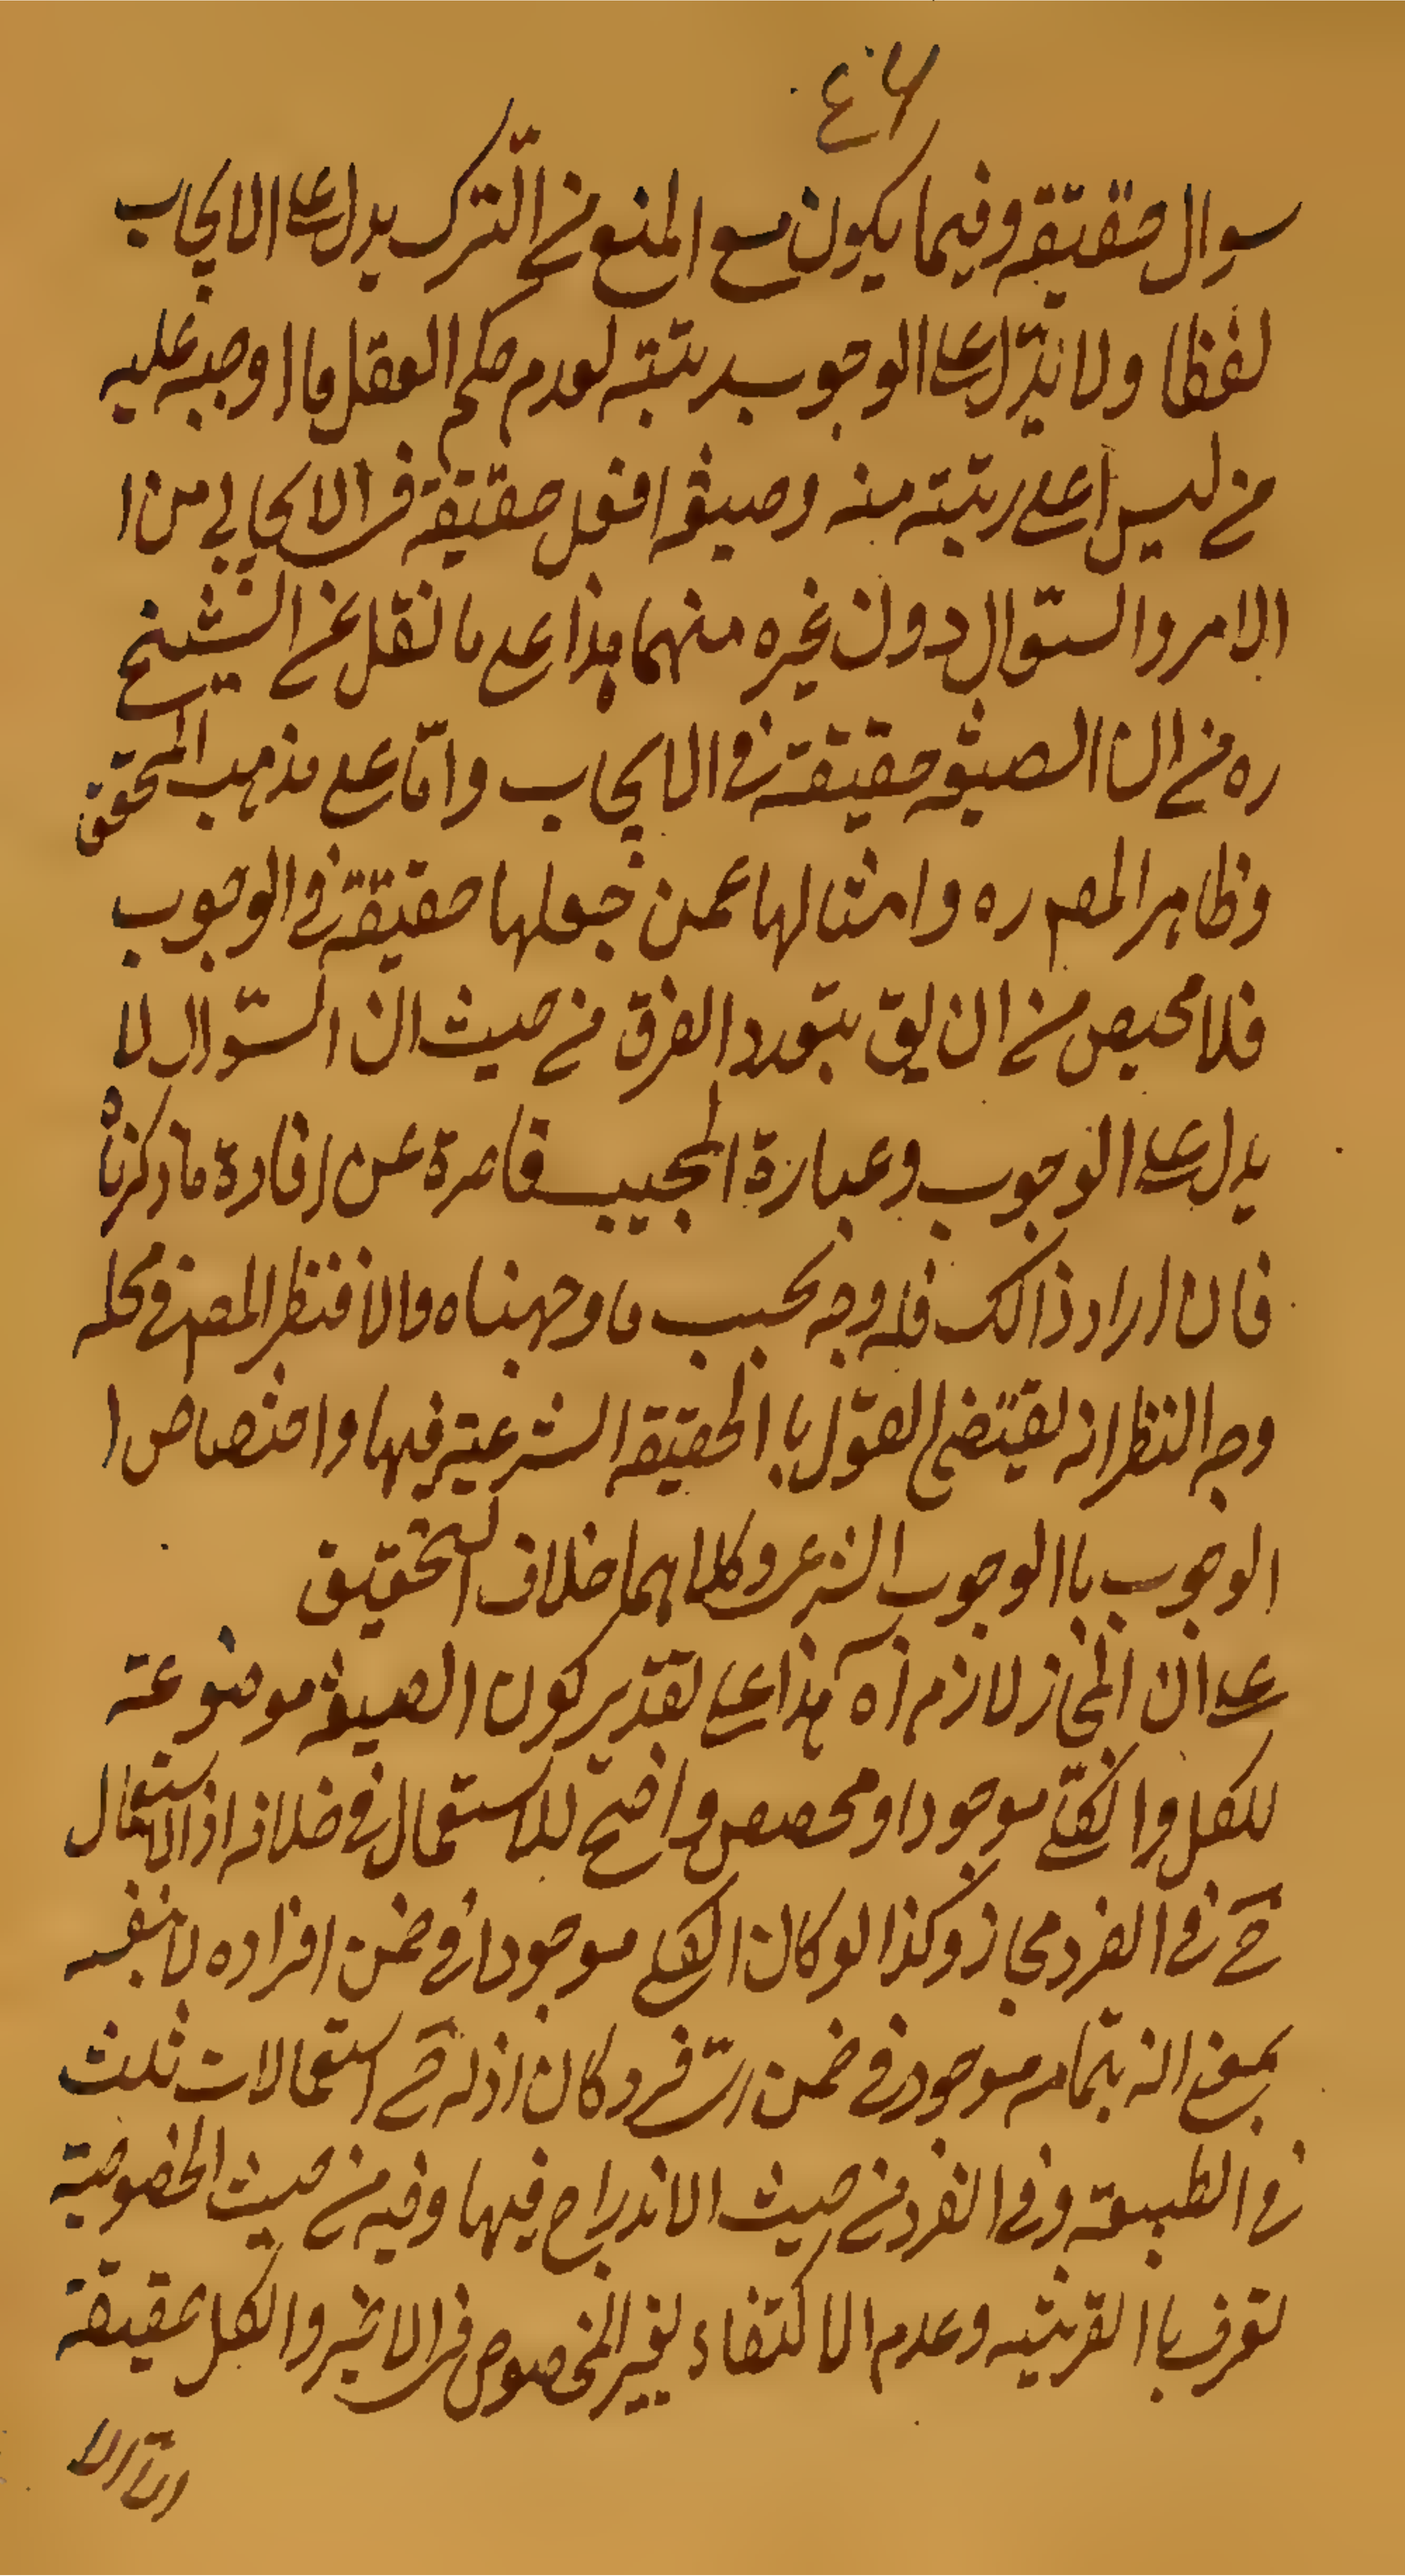 ٤٦
سوال حقيقة وفيما يكون مع المنع من الترك يدل على الايجاب
لفظا ولا يدل على الوجوب برتبته لعدم حكم العقل ما اوجبه عليه
من ليس اعلى رتبته منه وصيغه افعل حقيقة فى الايجابي من ا
الامر والسّوال دون غيره منهما هذا على ما نقل عن الشيخ
ره من ان الصيغه حقيقة في الايجاب وامّا على مذهب المحقق
وظاهر المص ره وامثالها عمن جعلها حقيقة في الوجوب
فلا محيص من ان يق بتعدد الفرق من حيث ان السّوال لا
يدل على الوجوب وعبارة المجيب قاصرة عن افادة ما ذكرناه
فان اراد ذالك فله وجه بحسب ما وجهناه والا فنظر المص في محله
وجه النظر انه يقتضى القول با الحقيقة الشرعية فيها واختصاص ا
الوجوب با الوجوب الشرعى وكلاهما خلاف التحقيق
على ان المجاز لازم آه هذا على تقدير كون الصيغه موضوعة
للكل والكلّى موجودا ومحصص واضح للاستعمال في خلافه اذ الاستعمال
ح في الفرد مجاز وكذا لو كان الكلى موجودا في ضمن افراده لا بنفسه
بمعنى انه بتمامه موجود في ضمن اىّ فرد كان اذ له ح استعمالات ثلث
في الطبيعة وفي الفرد من حيث الاندراج فيها وفيه من حيث الخصوصية
تعرف با القرينه وعدم الاكتفاء بغير المخصوص فى الاخير والكل بحقيقة